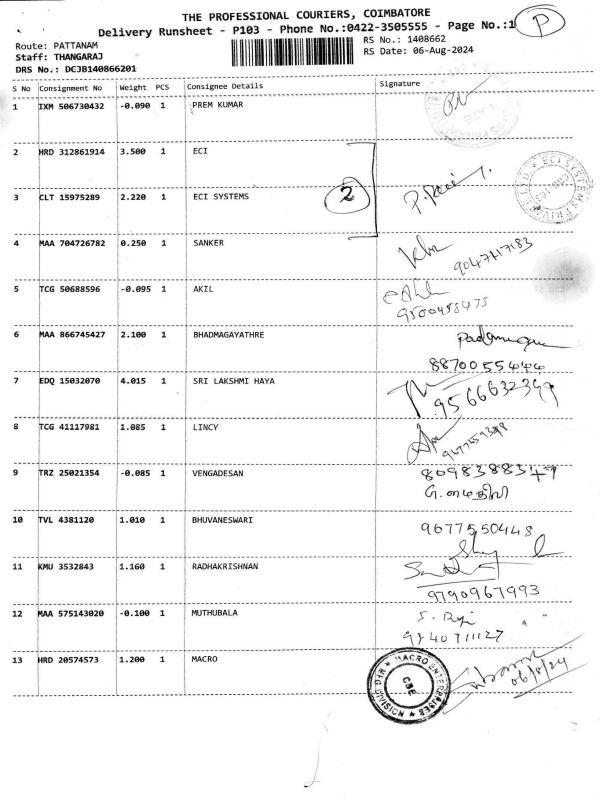 THE PROFESSIONAL COURIERS, COIMBATORE
Delivery Runsheet - P103 - Phone No.:0422-3505555 - Page No.:1 P
Route: PATTANAM RS No.: 1408662
Staff: THANGARAJ RS Date: 06-Aug-2024
DRS No.: DCJB140866201
S No Consignment No Weight PCS Consignee Details Signature
1 IXM 506730432 -0.090 1 PREM KUMAR
2 HRD 312861914 3.500 1 ECI
2
3 CLT 15975289 2.220 1 ECI SYSTEMS
ECI SYSTEMS PRIVATE LTD
4 MAA 704726782 0.250 1 SANKER
5 TCG 50688596 -0.095 1 AKIL
9500458475
6 MAA 866745427 2.100 1 BHADMAGAYATHRE
8870055444
7 EDQ 15032070 4.015 1 SRI LAKSHMI HAYA
9566632349
8 TCG 41117981 1.085 1 LINCY
9 TRZ 25021354 -0.085 1 VENGADESAN
8098388347
G. மைதிலி
10 TVL 4381120 1.010 1 BHUVANESWARI
9677550448
11 KMU 3532843 1.160 1 RADHAKRISHNAN
9790967993
12 MAA 575143020 -0.100 1 MUTHUBALA
9840711127
13 HRD 20574573 1.200 1 MACRO
MACRO ENTERPRISES
MFG DIVISION
CBE
06/8/24